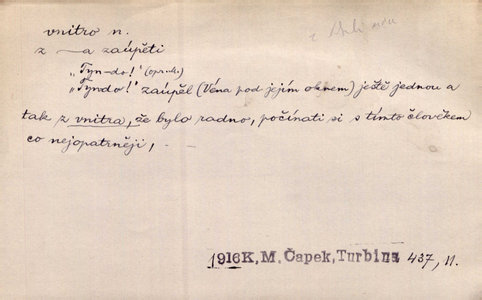 vnitro n.
z —a zaúpěti
„Tyn-do!"
„Tyndo!" zaúpěl (Véna pod jejím oknem) ještě jednou a
tak z vnitra, že bylo radno, počínati si s tímto člověkem
co nejopatrněji, –
1916 K. M. Čapek, Turbina 437, 11.